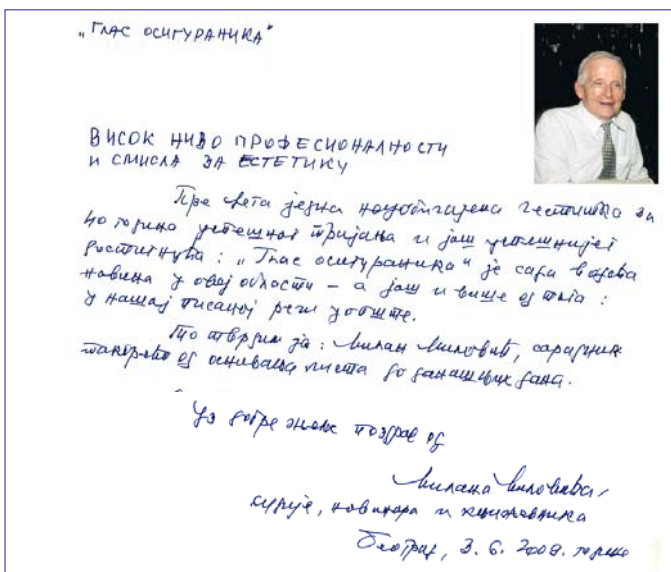 „ГЛАС ОСИГУРАНИКА“
ВИСОК НИВО ПРОФЕСИОНАЛНОСТИ
И СМИСЛА ЗА ЕСТЕТИКУ
Пре свега једна неуобичајена честитка за
40 година успешног трајања и још успешнијег
достигнућа: „Глас осигураника“ је сада
новина у овој области – а још и више од тога:
у нашој писаној речи уопште.
То тврдим ја: Милан Миловић, сарадник
од оснивања листа до данашњих дана.
Уз добре жеље поздрав од
Милана Миловића,
новинара и књижевника
Београд, 3. 6. 2009. године